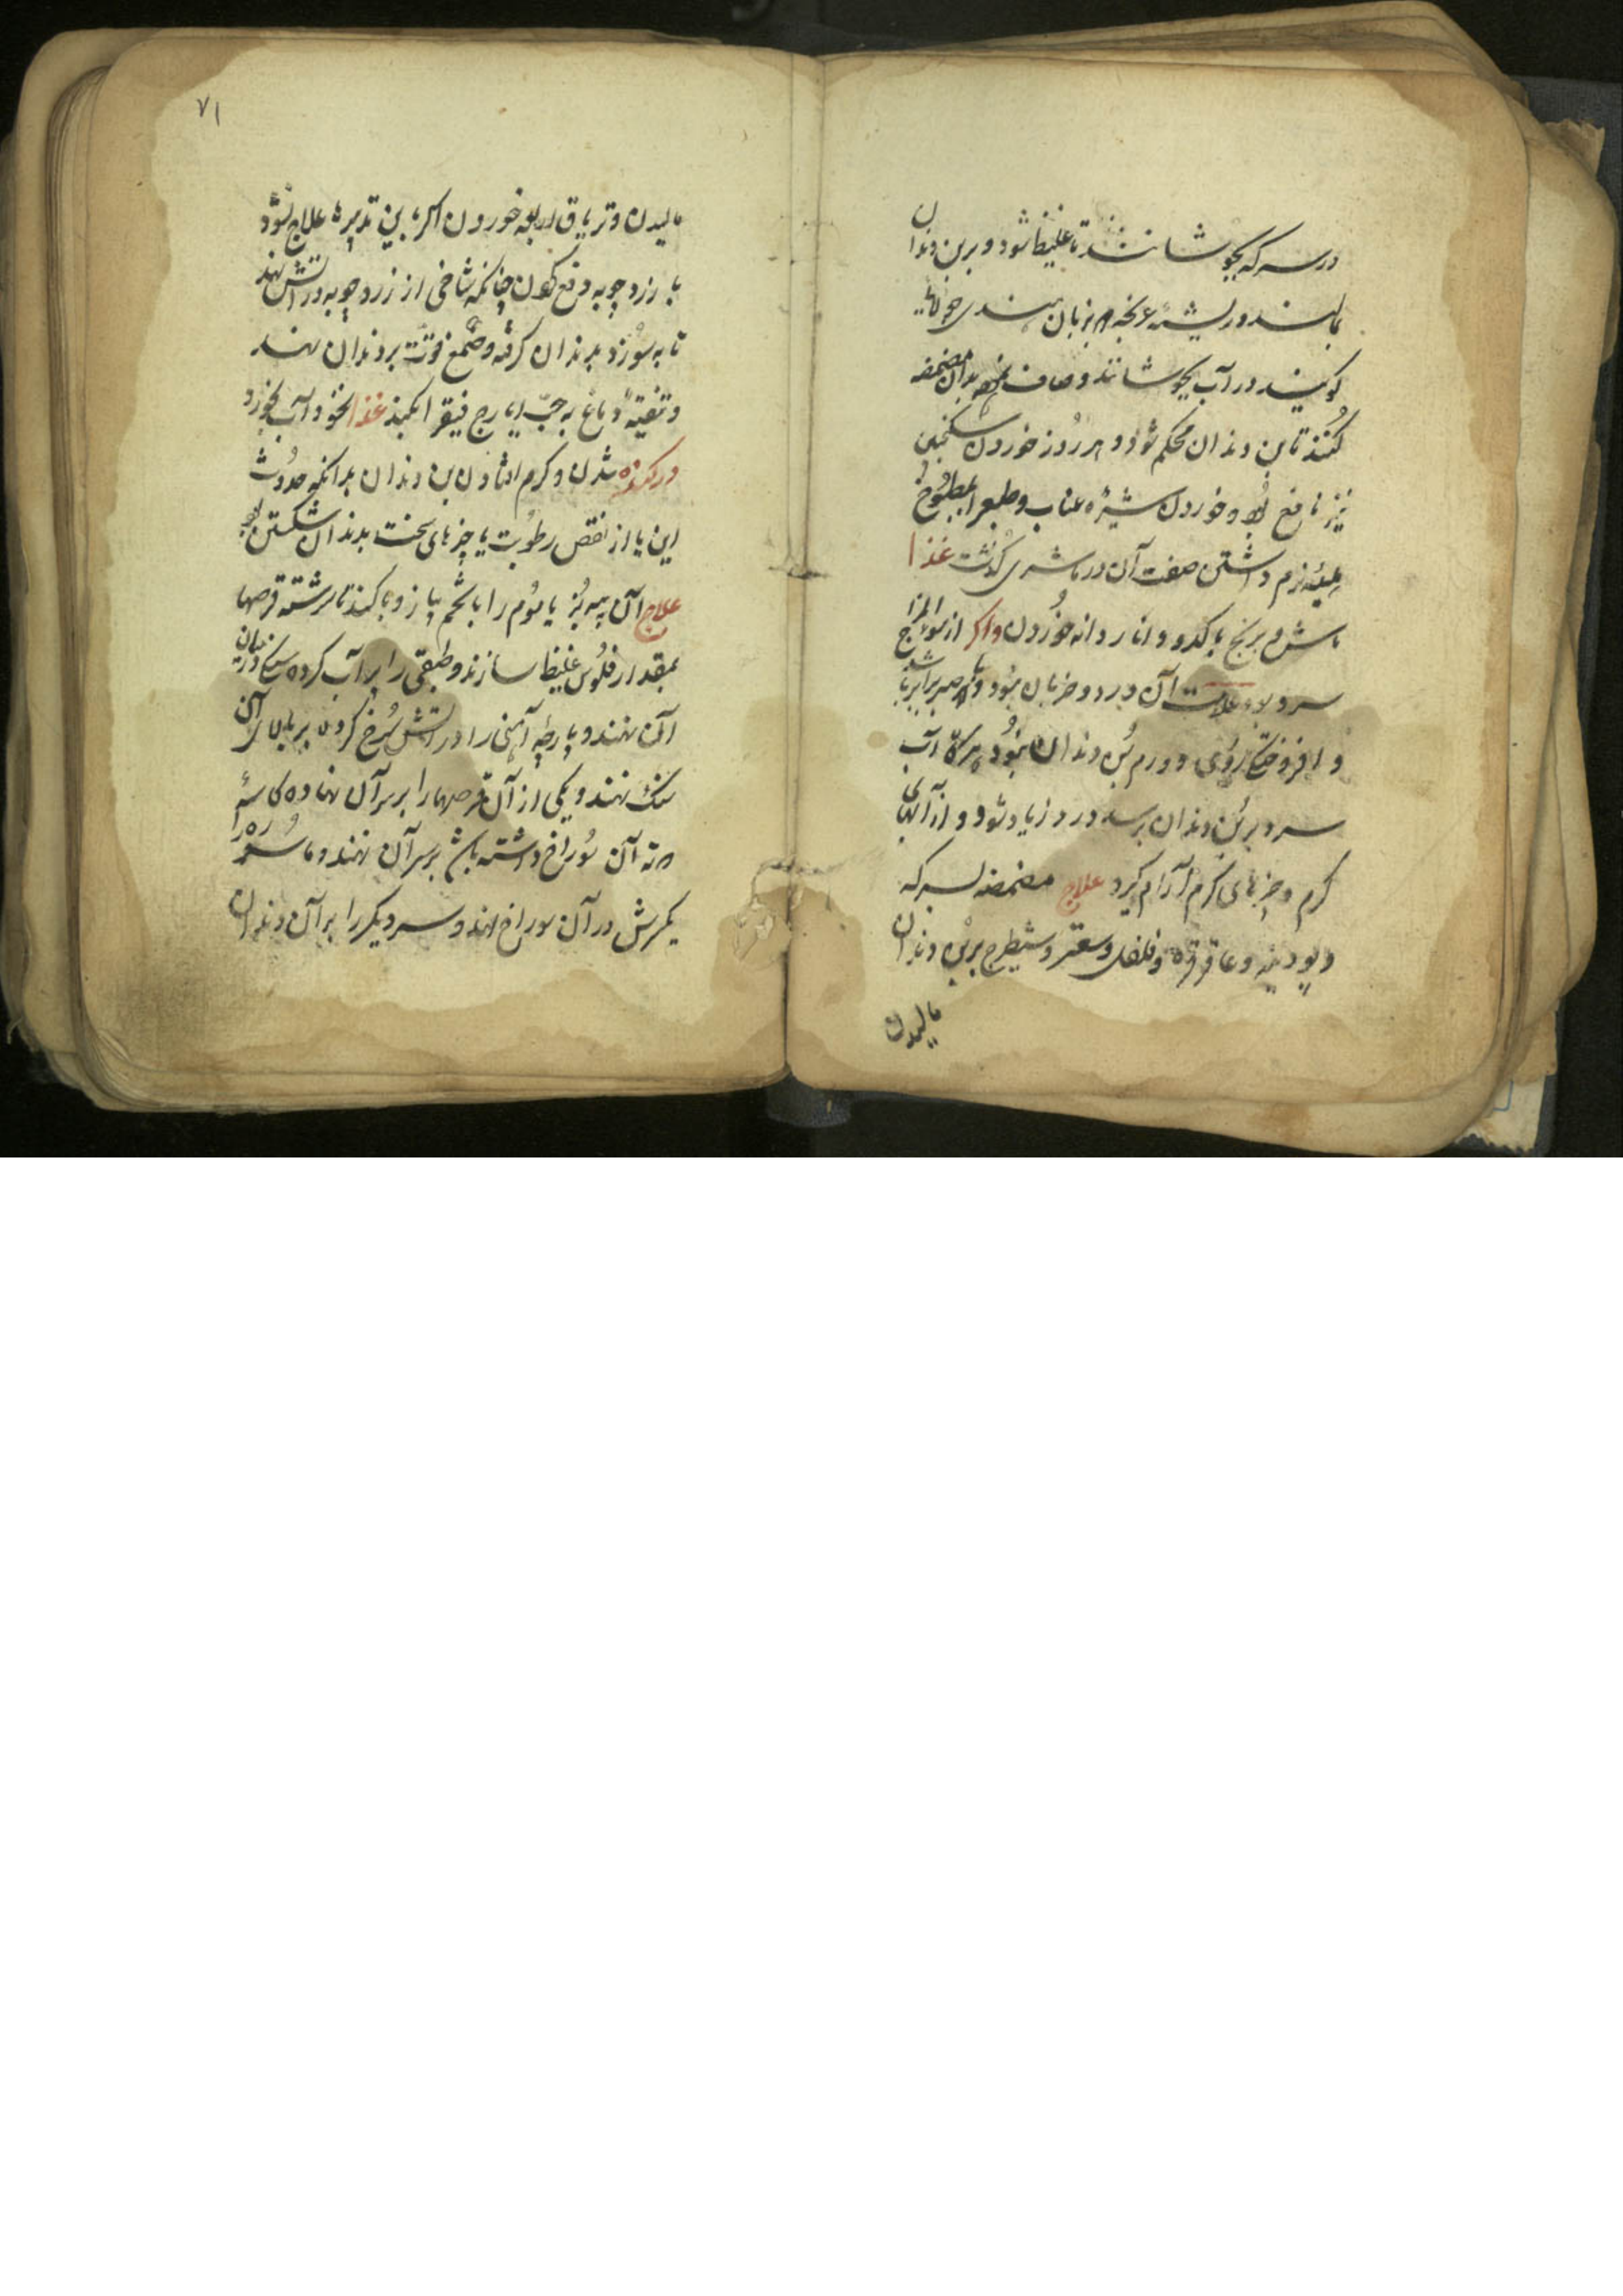 در سرکه بجوشانند تا غلیظ شود و بر بن دندان
بمالند و ریشه بزبان هندی
کویند در آب بجوشانند و صاف بدان مضمضه
کنند تا بن دندان محکم شود و هر روز خوردن سکنجبین
نیز نافع بود و خوردن شیره عناب و طبع را بمطبوخ
هلیله نرم داشتن صفت آن در ماشری گذشت غذا
ماش و برنج با کدو و انار دانه خوردن و اکر از سوء المزاج
سرد بود علامت آن درد و ضربان نبود و
و افروختگی روی و ورم بن دندان نبود هرگاه آب
سرد بر بن دندان برسد درد زیاد شود و از آبهای
کرم و چیزهای کرم آرام کیرد علاج مضمضه بسرکه
و پودینه و عاقرقرحا و فلفل و سعتر و شیطرج بر بن دندان
مالیدن
۷۱
مالیدن و تریاق اربعه خوردن اکر باین تدبیرها علاج نشود
با زرد چوبه دفع کردن چنانکه شاخی از زرد چوبه در آتش نهند
تا به سوزد بدندان کرفته و صمغ بر دندان نهند
و تنقیه دماغ به حب ایارج فیقرا بکنند غذا نخود آب بخورد
در کنده شدن و کرم افتادن بن دندان بدانکه حدوث
این یا از نقص رطوبت یا چیزهای سخت بدندان شکستن بود
علاج آن پیه بز یا موم را با تخم پیاز و با کندنا سرشته قرصها
بمقدار فلوس غلیظ سازند و طبقی را پر آب کرده سنگی در میان
آن نهند و پارچه آهنی را در آتش سرخ کرده بر بالای آن
سنک نهند و یکی از آن قرصها را بر سر آن نهاده کاسهٔ
که ته آن سوراخ داشته باشد بر سر آن نهند و ماسوره را
یکسرش در آن سوراخ نهند و سر دیکر را بر آن دندان